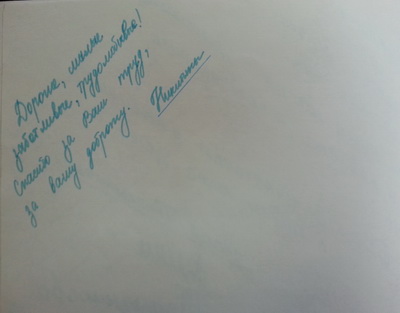 Дорогие, милые
заботливые, трудолюбивые!
Спасибо за Ваш труд,
за вашу доброту.
Никитины